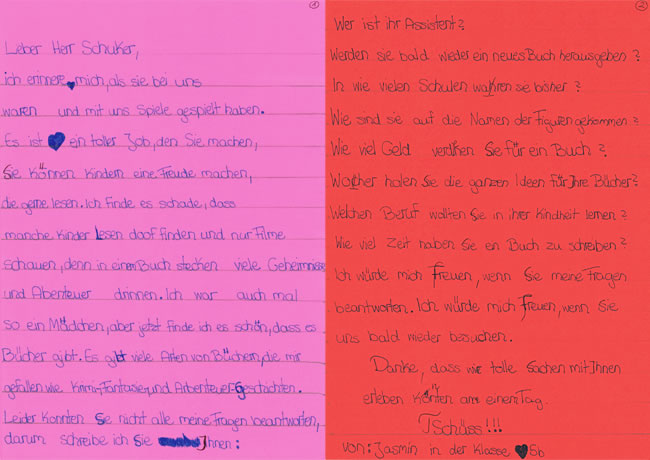 1
Leber Herr Schuker,
ich erinnere mich, als sie bei uns
waren und mit uns Spiele gespielt haben.
Es ist ein toller Job, den Sie machen,
Sie können Kindern eine Freude machen,
die gerne lesen. Ich finde es schade, dass
manche Kinder Lesen doof finden und nur Filme
schauen, denn in einem Buch stecken viele Geheimnisse
und Abenteuer drinnen. Ich war auch mal
so ein Mädchen, aber jetzt finde ich es schön, dass es
Bücher gibt. Es gibt viele Arten von Büchern, die mir
gefallen wie Krimi, Fantasie und Arbenteuer Geschichten.
Leider konnten Sie nicht alle meine Fragen beantworten,
darum schreibe ich Sie Ihnen:
2
Wer ist ihr Assistent?
Werden sie bald wieder ein neues Buch herausgeben?
In wie vielen Schulen waren sie bisher?
Wie sind sie auf die Namen der Figuren gekommen?
Wie viel Geld verdinen Sie für ein Buch?
Woher holen Sie die ganzen Ideen für Ihre Bücher?
Welchen Beruf wollten Sie in ihrer Kindheit lernen?
Wie viel Zeit haben Sie ein Buch zu schreiben?
Ich würde mich Freuen, wenn Sie meine Fragen
beantworten. Ich würde mich Freuen, wenn Sie
uns bald wieder besuchen.
Danke, dass wir tolle Sachen mit Ihnen
erleben konnten an einem Tag.
TSchüss!!!
von: Jasmin in der Klasse 5b